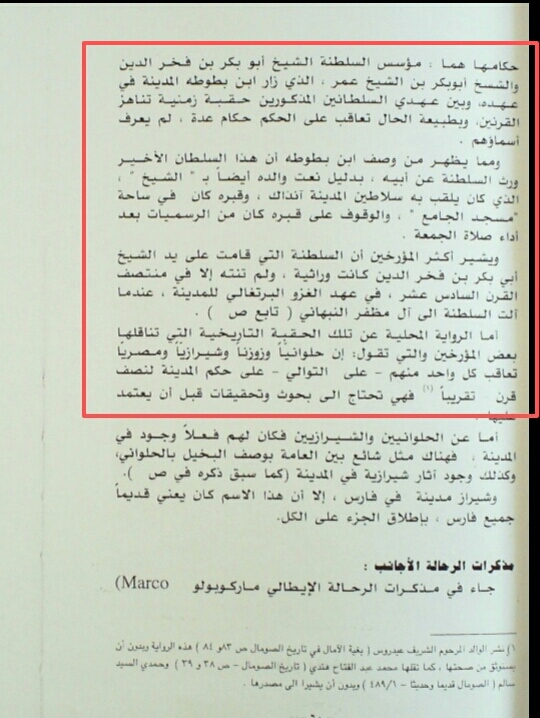 حكامها هما : مؤسس السلطنة الشيخ أبو بكر بن فخر الدين
والشسخ أبوبكر بن الشيخ عمر ، الذي زار ابن بطوطه المدينة في
عهده، وبين عهدي السلطانين المذكورين حقبة زمنية تناهز
القرنين، وبطبيعة الحال تعاقب على الحكم حكام عدة ، لم يعرف
أسماؤهم .
ومما يظهر من وصف ابن بطوطه أن هذا السلطان الأخير
ورث السلطنة عن أبيه ، بدليل نعت والده أيضاً بـ " الشيخ " ،
الذي كان يلقب به سلاطين المدينة آنذاك ، وقبره كان في ساحة
"مسجد الجامع " ، والوقوف على قبره كان من الرسميات بعد
أداء صلاة الجمعة .
ويشير أكثر المؤرخين أن السلطنة التي قامت على يد الشيخ
أبي بكر بن فخر الدين كانت وراثية ، ولم تنته إلا في منتصف
القرن السادس عشر ، في عهد الغزو البرتغالي للمدينة ، عندما
آلت السلطنة الى آل مظفر النبهاني ( تابع ص ) .
أما الرواية المحلية عن تلك الحقبة التاريخية التي تناقلها
بعض المؤرخين والتي تقول: إن حلوانياً وزوزناً وشيرازياً ومصرياً
تعاقب كل واحد منهم - على التوالي - على حكم المدينة لنصف
قرن - تقريباً (١) فهي تحتاج الى بحوث وتحقيقات قبل أن يعتمد
عليها .
أما عن الحلوانيين والشيرازيين فكان لهم فعلاً وجود في
المدينة ، فهناك مثل شائع بين العامة بوصف البخيل بالحلواني،
وكذلك وجود آثار شيرازية في المدينة (كما سبق ذكره في ص ).
وشيراز مدينة في فارس ، إلا أن هذا الاسم كان يعني قديماً
جميع فارس ، بإطلاق الجزء على الكل.
مذكرات الرحالة الأجانب :
جاء في مذكرات الرحالة الإيطالي ماركوبولو (Marco
١) نشر الوالد المرحوم الشريف عيدروس ( بغية الآمال في تاريخ الصومال ص ٨٣و ٨٤ ) هذه الرواية وبدون أن
يستوثق من صحتها ، كما نقلها محمد عبد الفتاح هندي ( تاريخ الصومال - ص ٣٨ و ٣٩ ) وحمدي السيد
سالم ( الصومال قديما وحديثا - ٤٨٩/١ ) وبدون أن يشيرا الى مصدرها .